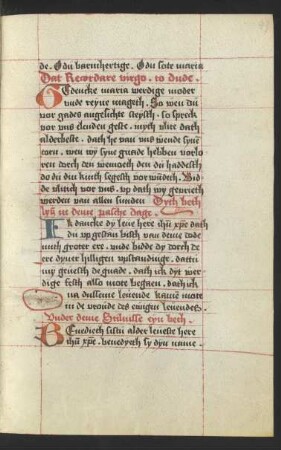 de. O du barmhertige. O du sote maria
Dat Recordare virgo. to dude.
Gedencke maria werdige moder
vnde reyne maget. So wen du
vor gades angesichte steyst. so sprek
vor vns elenden geste. myt vlite dath
alderbeste. dath he van vns wende syne
torn. wen wy syne gnade hebben vorlo
ren dorch den wemoeth den du haddest
do du din kint segest vorwundeth. Bid
de vor vns. up dath wy gevriet
werden van allen sunden Dyth beth
in deme pasche dage.
Ik dancke dy leve here ihu xpe dath
du up gestan bist van deme dode
myth groter ere. vnde bidde dy dorch de
ere dyner hilligen upstandinge. dattu
my gevest de gnade. dath ick dyt wer
dige festh also mote began. dath ick
na dusseme levende kamen mote
in de vroude des ewigen levendes.
Vnder deme Stilnisse eyn beth.
Benedieth sistu alder leveste here
ihu xpe. benedyeth sy dyn name.